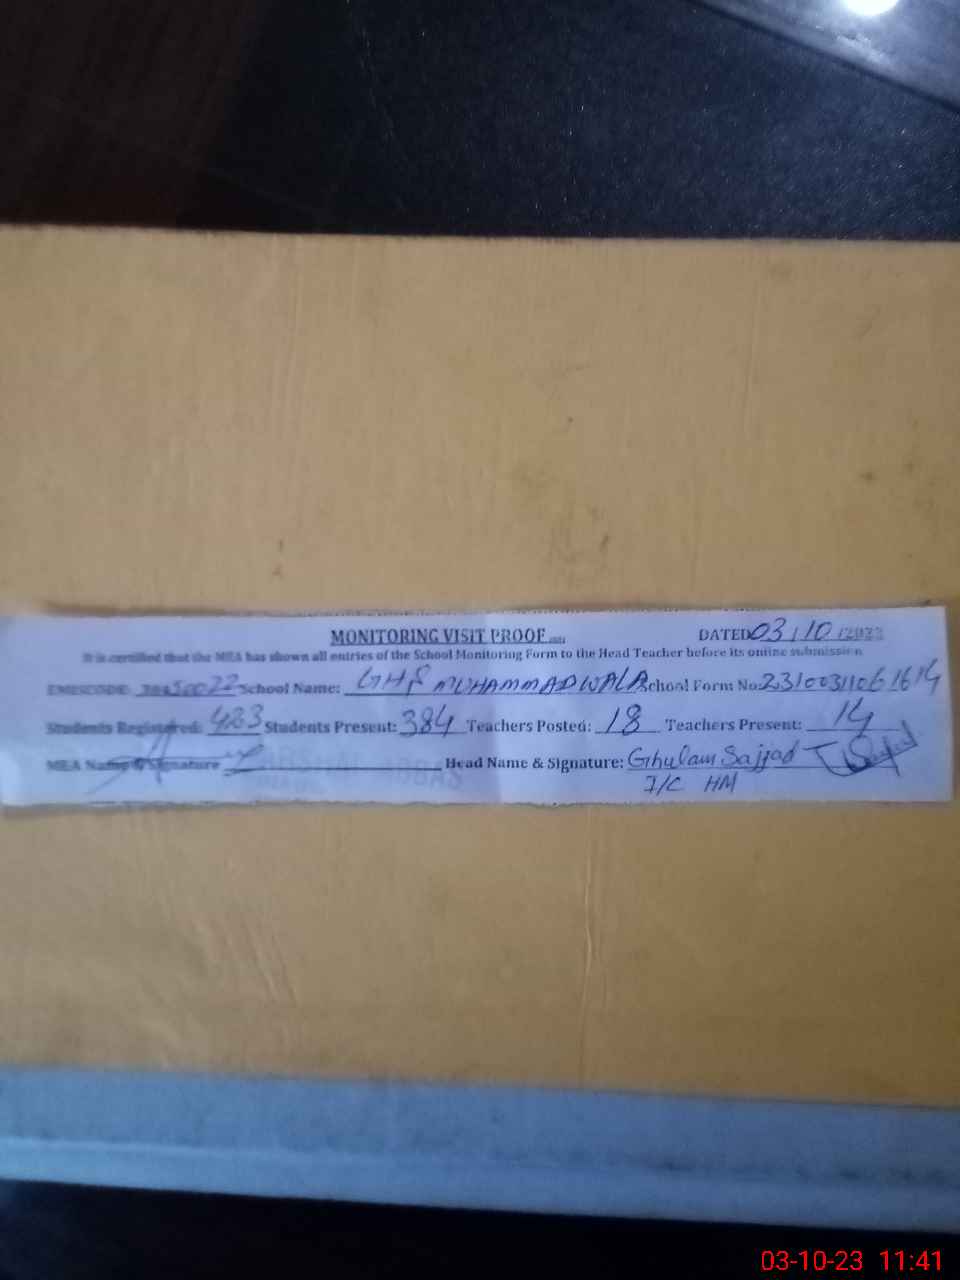 MONITORING VISIT PROOF DATED 03/10/2023
It is certified that the MEA has shown all entries of the School Monitoring Form to the Head Teacher before its online submission
EMISCODE: School Name: GHS MUHAMMADWALA School Form No: 23100311061614
Students Registered: 423 Students Present: 384 Teachers Posted: 18 Teachers Present: 14
MEA Name & Signature Head Name & Signature: Ghulam Sajjad
I/C HM
03-10-23 11:41